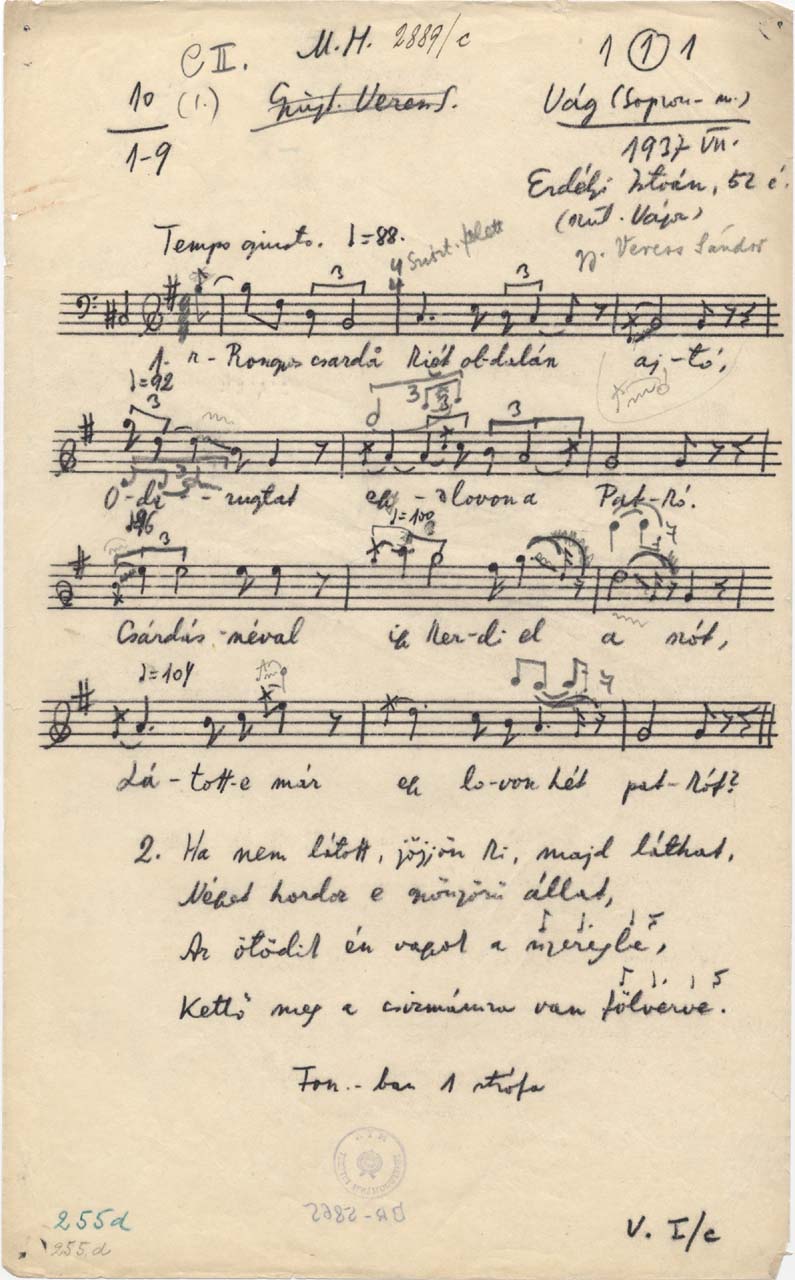 C II. M.H. 2889/c 1 1 1
10 (1.) Gyűjt. Veress S. Vág (Sopron-m.)
1-9 1937 VII.
Erdélyi István, 52 é.
(szül. Vágon)
Tempo giusto. ♩=88. gy. Veress Sándor
3 3
1. r-Rongyos csárda kiët oldalán aj-tó,
♩=92
3 3 3 3
O-da rugtat egy lovon a Pat-kó.
♩=96 ♩=100
3
Csárdás-néval így kez-di el a szót,
♩=104
Lá-tott-e már egy lo-von hét pat-kót?
2. Ha nem látott, jöjjön ki, majd láthat,
Négyet hordoz e gyönyörű állat,
Az ötödik én vagyok a nyeregbe,
Kettő meg a csizmámra van fölverve.
Fon.-ban 1 strófa
BR-5865
255d
255.d V. I/c